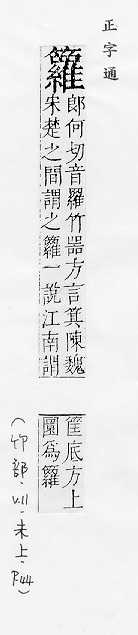 正字通
籮
郎何切音羅竹器方言箕陳魏
宋楚之間謂之籮一說江南謂
筐底方上
圜為籮
(竹部.V.11.未上.P.44)